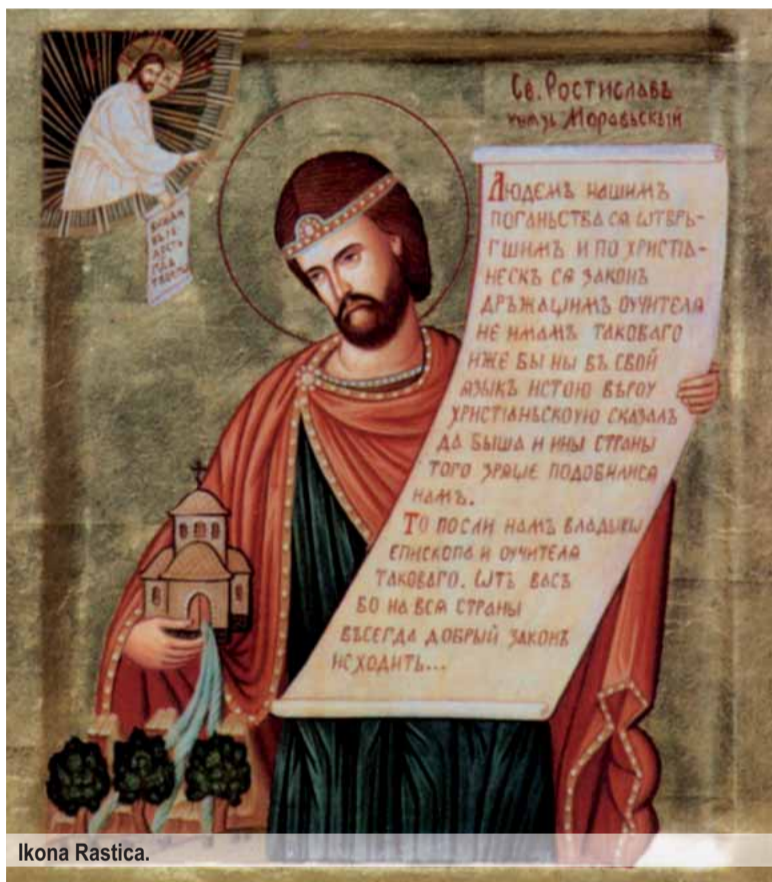 Св. Ростиславъ
князь Моравьскый
Людемъ нашимъ
поганьства сѧ ѿтврь-
гшимъ и по христїа-
нескъ сѧ законъ
дръжащимъ оучителѧ
не имамъ таковаго
иже бы ны въ свой
ѧзыкъ истою вѣроу
христїаньскоую сказалъ
да быша и ины страны
того зряще подобилисѧ
намъ.
То посли намъ владыкы
епископа и оучителѧ
таковаго. Ѿтъ васъ
бо на всѧ страны
въсегда добрый законъ
исходить...
Ikona Rastica.